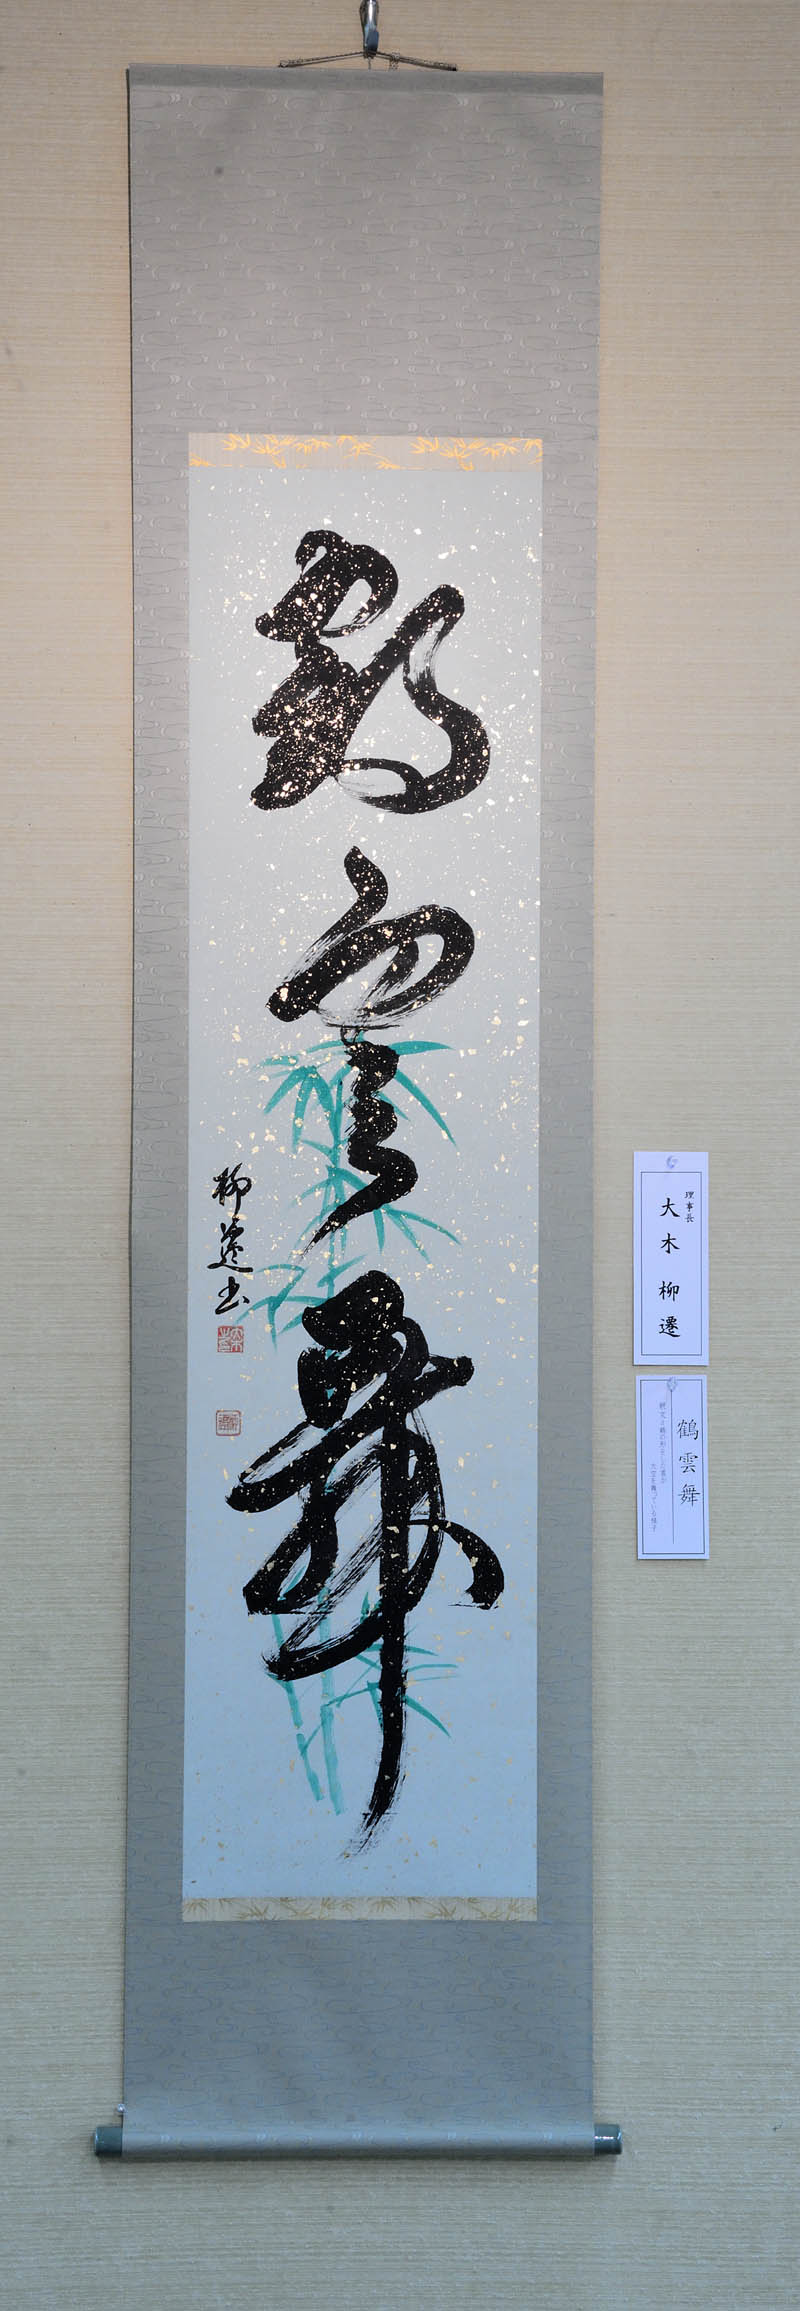 鶴雲舞
柳遷書
理事長
大木 柳遷
鶴雲舞
大空を舞っている様子